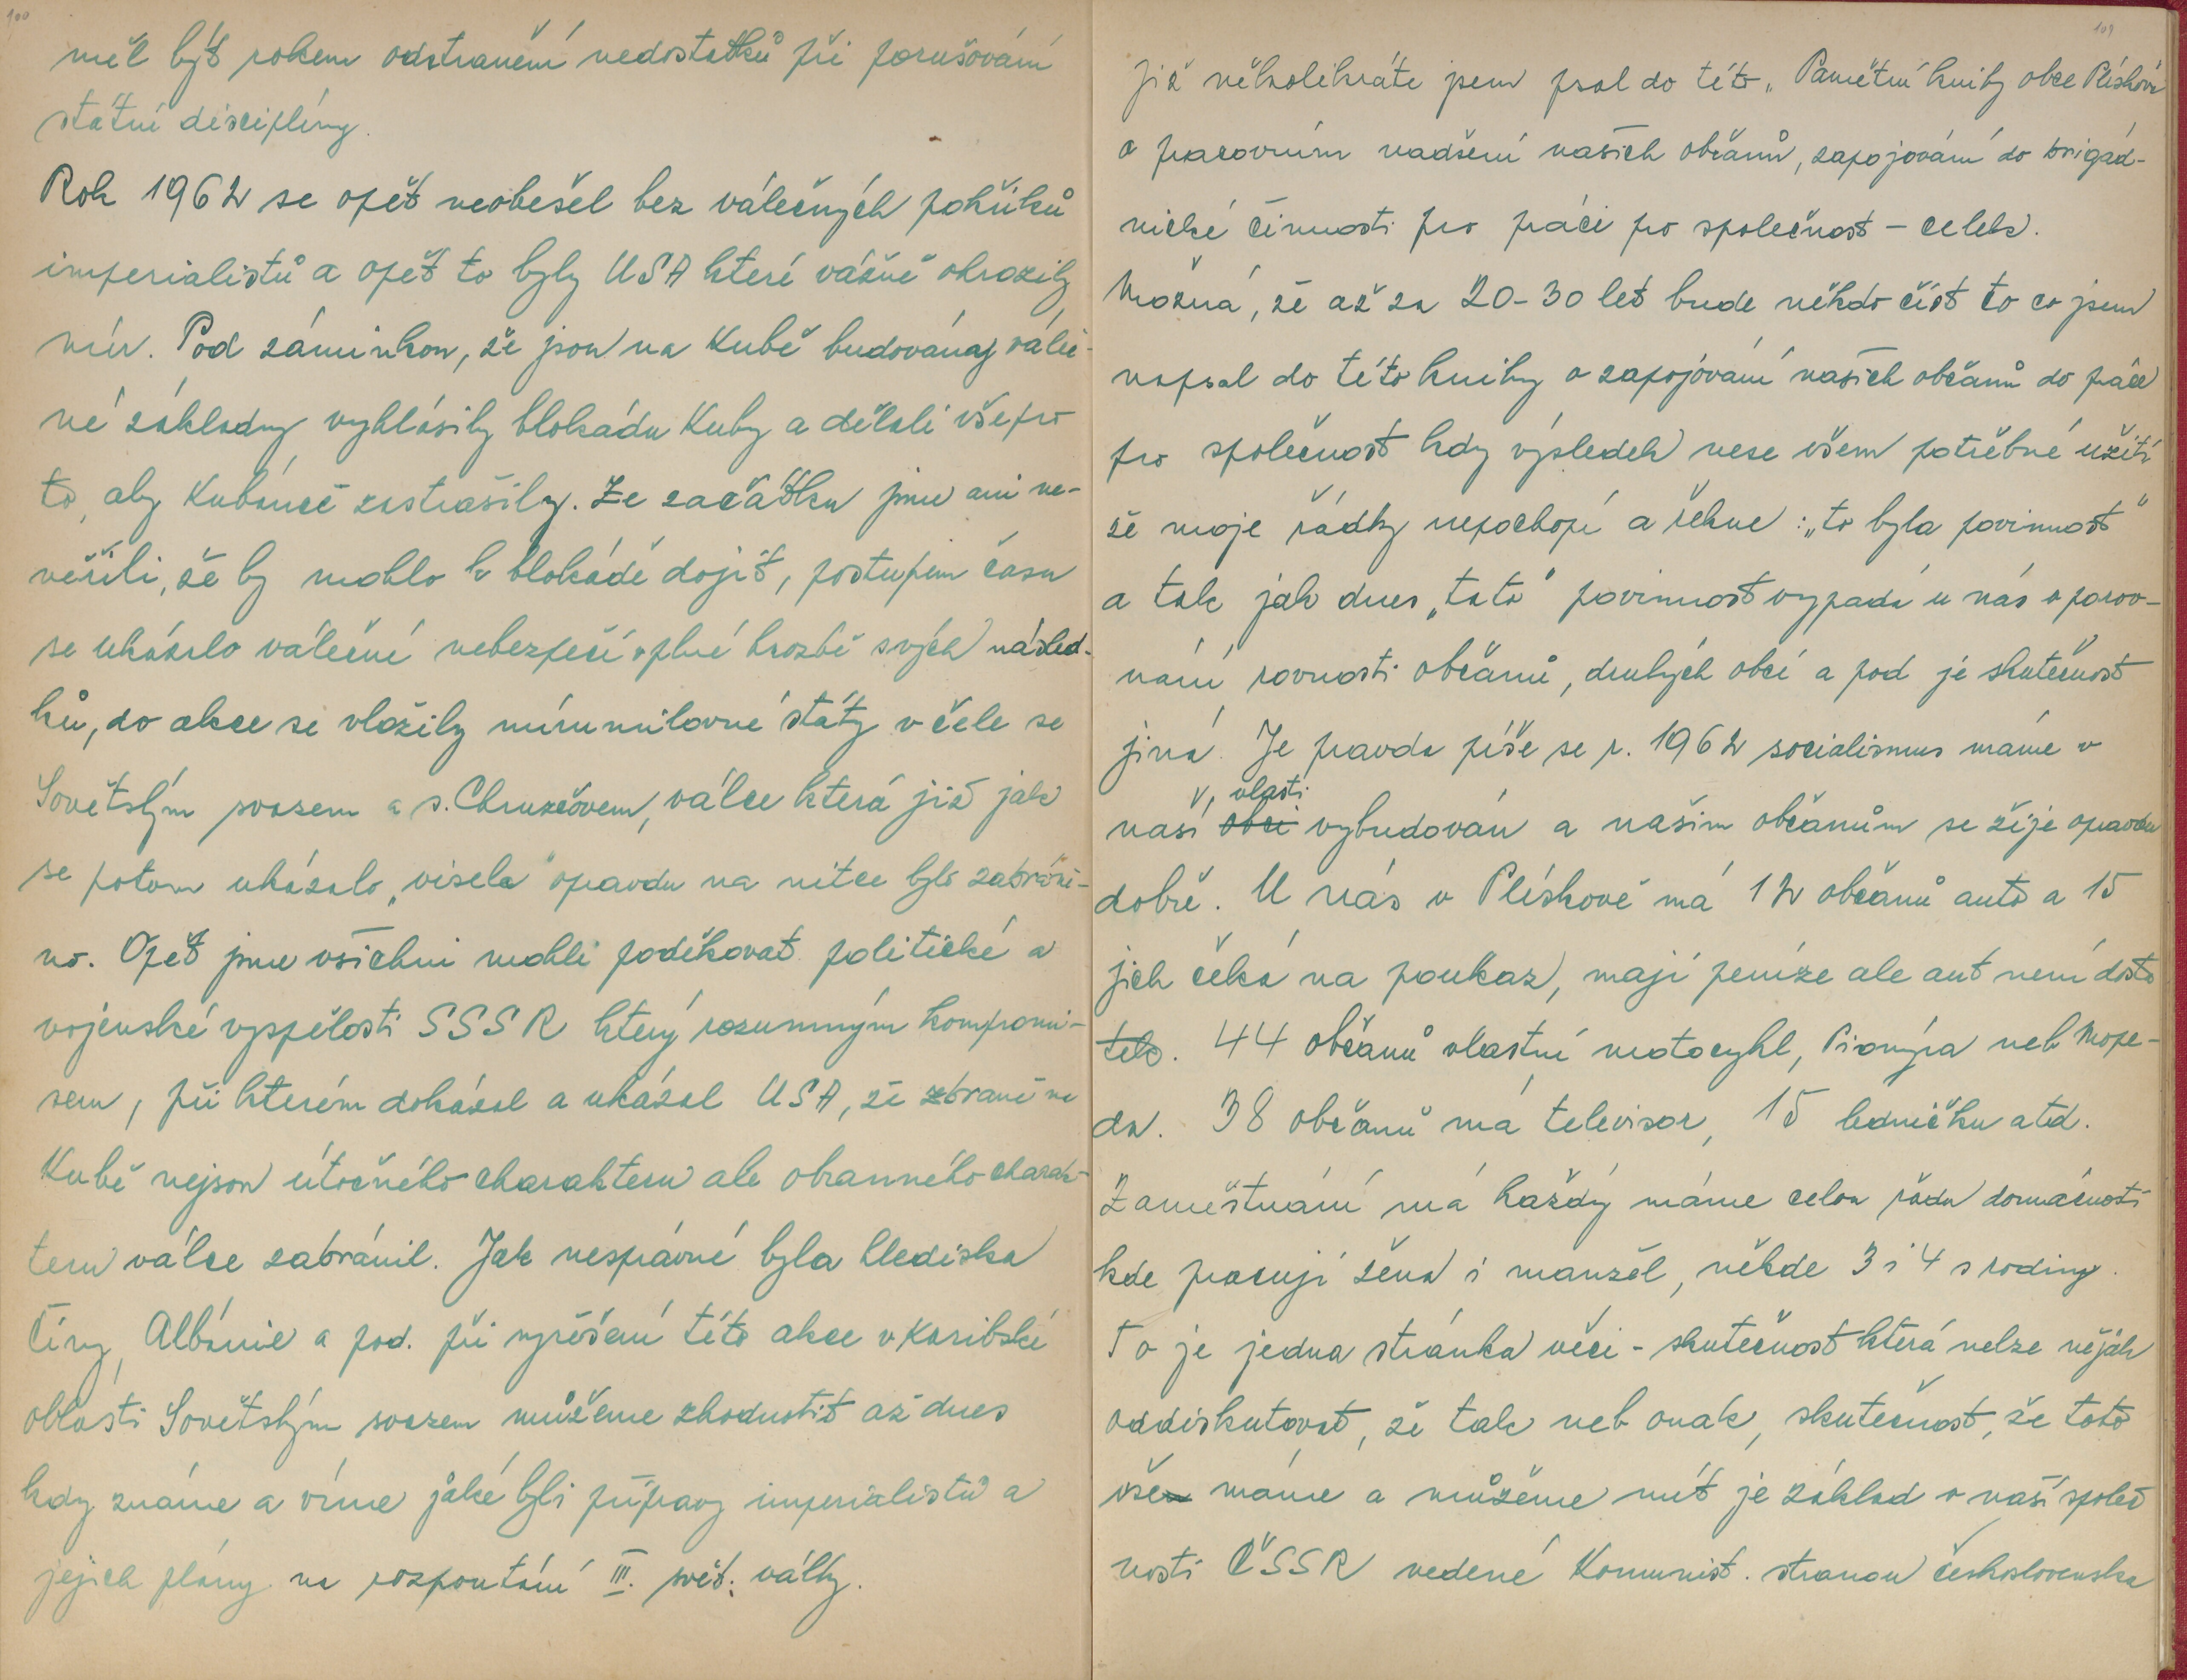 100
měl být rokem odstranění nedostatků při porušování
státní disciplíny.
Rok 1962 se opět neobešel bez válečných pokřiků
imperialistů a opět to byly USA které vážně ohrozily
mír. Pod záminkou, že jsou na Kubě budovány váleč-
né základny vyhlásily blokádu Kuby a dělali vše pro
to, aby Kubánce zastrašily. Ze začátku jsme ani ne-
věřili, že by mohlo k blokádě dojít, postupem času
se ukázalo válečné nebezpečí v plné hrozbě svých násled-
ků, do akce se vložily mírumilovné státy v čele se
Sovětským svazem a s. Chruščovem, válce která již jak
se potom ukázalo „visela" opravdu na nitce bylo zabráně-
no. Opět jsme všichni mohli poděkovat politické a
vojenské vyspělosti SSSR který rozumným kompromi-
sem, při kterém dokázal a ukázal USA, že zbraně na
Kubě nejsou útočného charakteru ale obranného charak-
teru válce zabránil. Jak nesprávné byla hlediska
Číny, Albánie a pod. při vyřešení této akce v Karibské
oblasti Sovětským svazem můžeme zhodnotit až dnes
kdy známe a víme jaké byli přípravy imperialistů a
jejich plány na rozpoutání III. svět. války.
109
Již několikráte jsem psal do této „Pamětní knihy obce Plískova
o pracovním nadšení našich občanů, zapojování do brigád-
nické činnosti pro práci pro společnost - celek.
Možná, že až za 20-30 let bude někdo číst to co jsem
napsal do této knihy o zapojování našich občanů do práce
pro společnost kdy výsledek nese všem potřebné užití
že moje řádky nepochopí a řekne: „to byla povinnost"
a tak jak dnes „tato" povinnost vypadá u nás v porov-
nání rovnosti občanů, druhých obcí a pod je skutečnost
jiná. Je pravda píše se r. 1962 socialismus máme v
v, vlasti
naší obci vybudován a našim občanům se žije opravdu
dobře. U nás v Plískově má 12 občanů auto a 15
jich čeká na poukaz, mají peníze ale aut není dosta
tek. 44 občanů vlastní motocykl, Pionýra neb Mope-
da. 38 občanů má televisor, 15 ledničku atd.
Zaměstnání má každý máme celou řadu domácností
kde pracují žena i manžel, někde 3 i 4 s rodiny.
To je jedna stránka věci - skutečnost která nelze nějak
oddiskutovat, že tak neb onak, skutečnost, že toto
vše máme a můžeme mít je základ v naší společ
nosti ČSSR vedené Komunist. stranou Československa